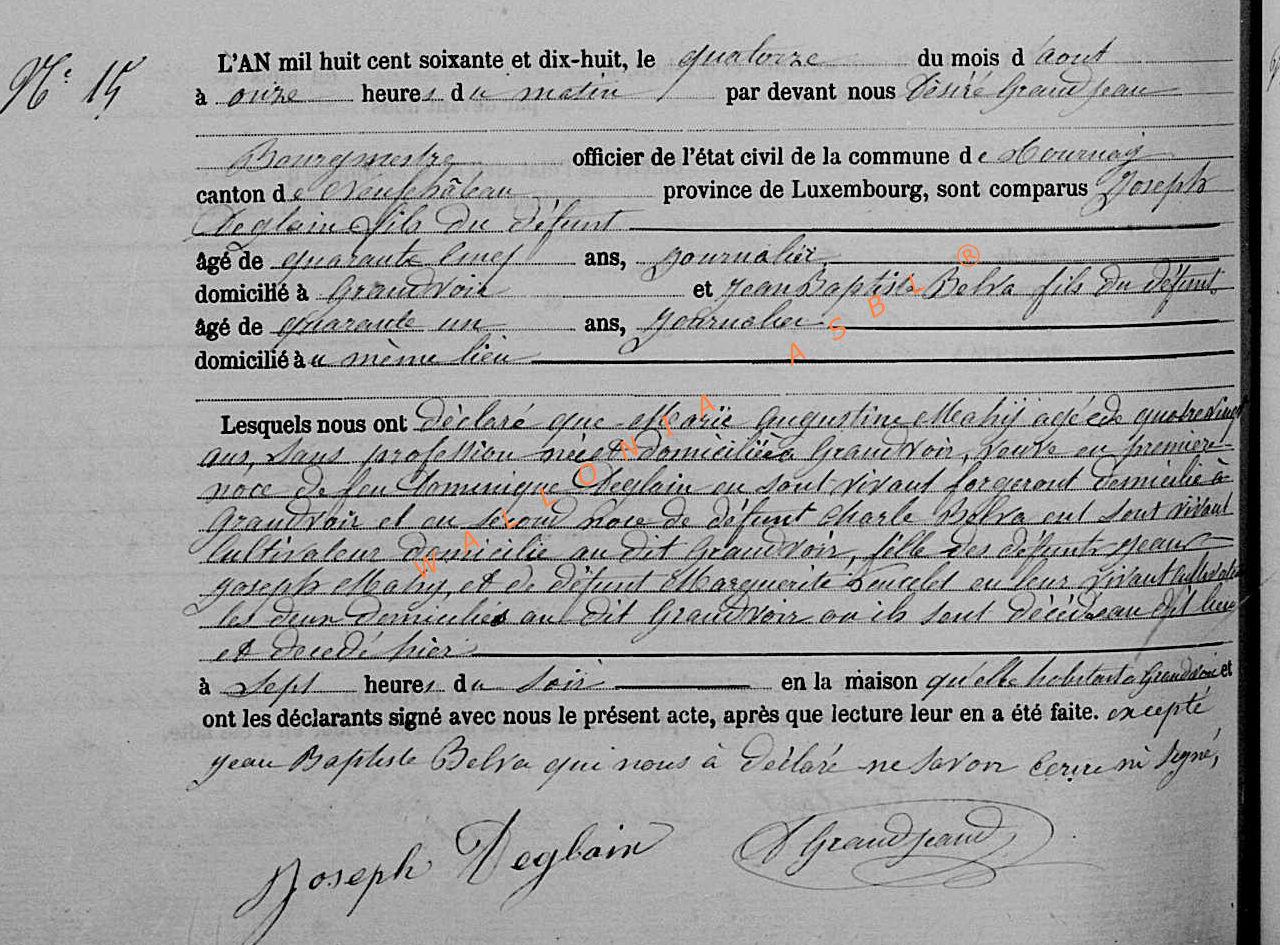 N.º 15
L'AN mil huit cent soixante et dix-huit, le quatorze du mois d'aout
à onze heures du matin par devant nous Désiré Grandjean
Bourgmestre officier de l'état civil de la commune de Tournay
canton de Neufchâteau province de Luxembourg, sont comparus Joseph
Deglain fils du défunt
âgé de quarante cinq ans, journalier
domicilié à Grandvoir et Jean Baptiste Belva fils du défunt
âgé de quarante un ans, journalier
domicilié au même lieu
Lesquels nous ont déclaré que Marie Augustine Mahy agée de quatrevingt
ans, sans profession née et domiciliée à Grandvoir, veuve en première
noce de feu Dominique Deglain en sont vivant forgeront domicilié à
Grandvoir et en second noce de défunt Charle Belva ent sont vivant
cultivateur domicilié au dit Grandvoir, fille des défunts Jean
Joseph Mahy et de défunt Marguerite en leur vivant
les deux domiciliés au dit Grandvoir ou ils sont décédé au dit lieu
et decedé hier
à sept heures du soir en la maison qu'elle habitait à Grandvoir et
ont les déclarants signé avec nous le présent acte, après que lecture leur en a été faite. excepté
Jean Baptiste Belva qui nous à déclaré ne savoir ecrire ni signé,
Joseph Deglain DGrandjean
WALLONIA ASBL ®